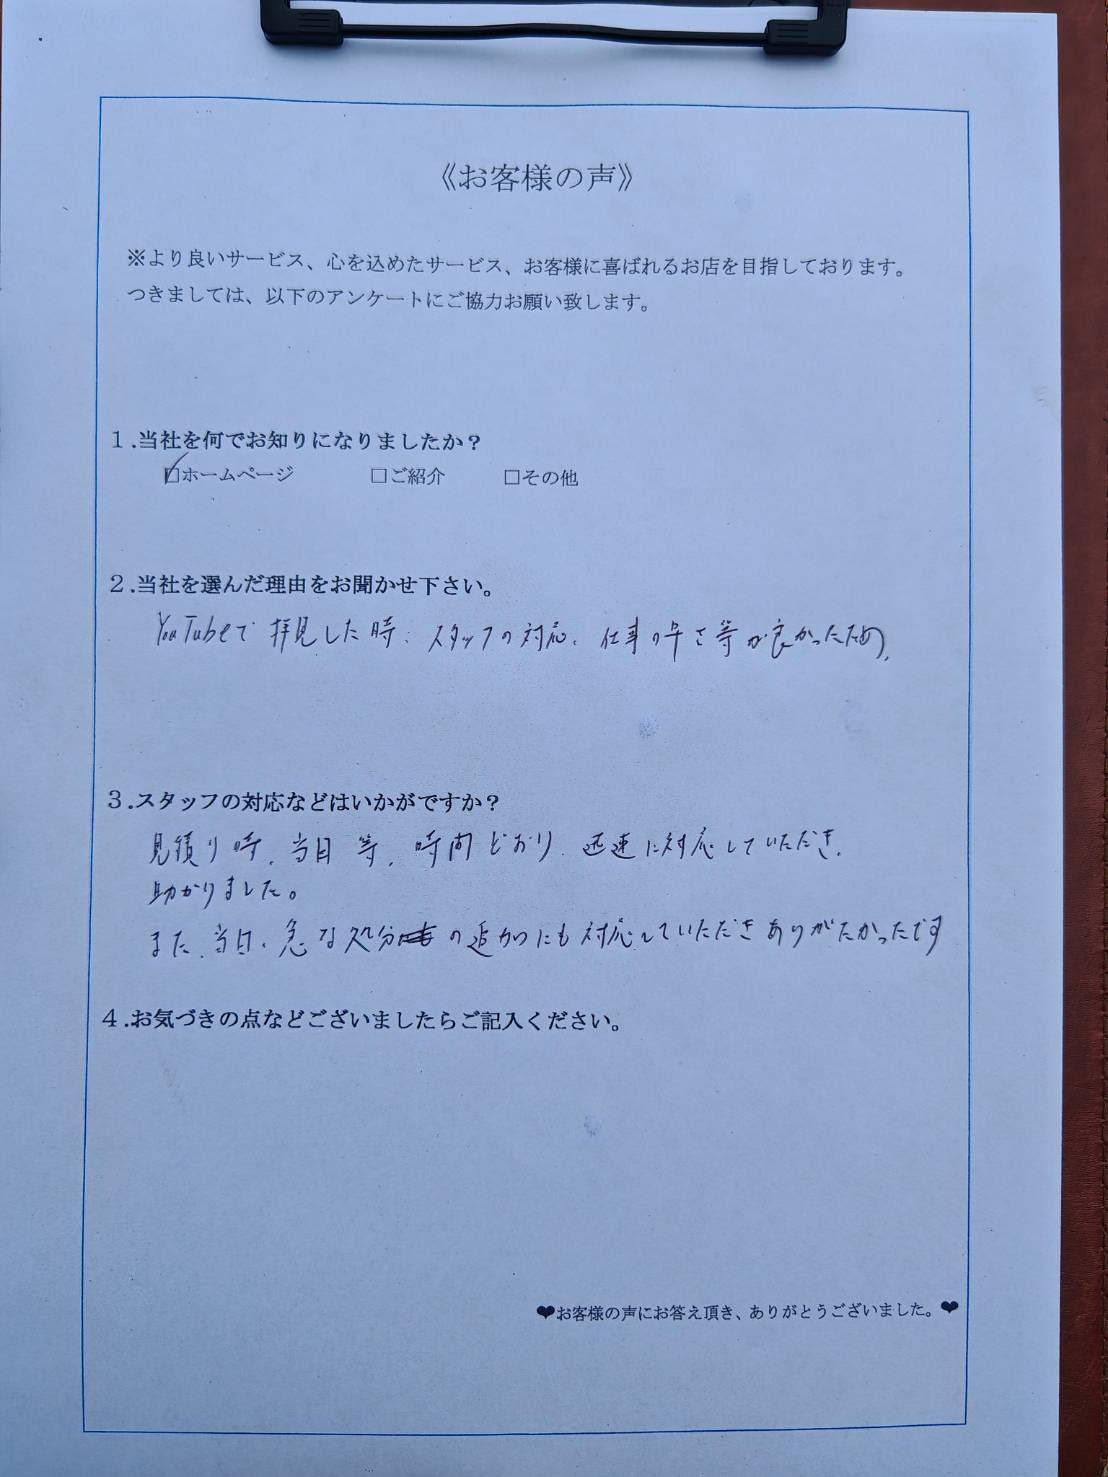 《お客様の声》
※より良いサービス、心を込めたサービス、お客様に喜ばれるお店を目指しております。
つきましては、以下のアンケートにご協力お願い致します。
１.当社を何でお知りになりましたか？
☑ホームページ　□ご紹介　□その他
２.当社を選んだ理由をお聞かせ下さい。
YouTubeで拝見した時、スタッフの対応、仕事の早さ等が良かったため、
３.スタッフの対応などはいかがですか？
見積り時、当日等、時間どおり、迅速に対応していただき、
助かりました。
また、当日、急な処分の追加にも対応していただきありがたかったです
４.お気づきの点などございましたらご記入ください。
❤お客様の声にお答え頂き、ありがとうございました。❤